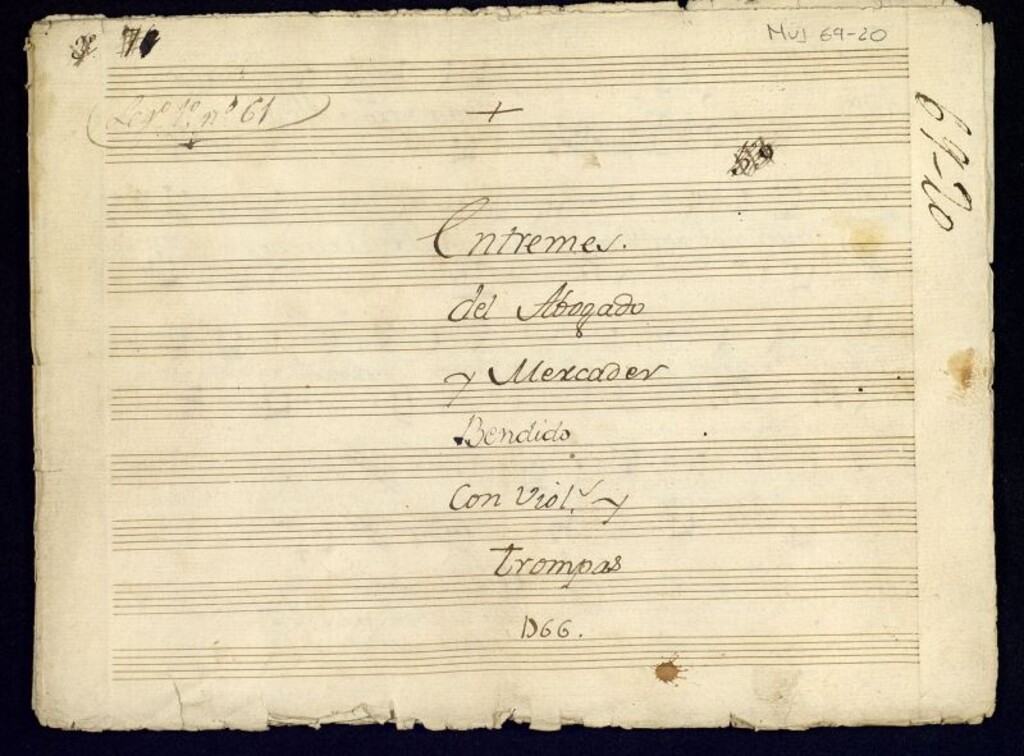 Mus 69-20
Leg.º 1.º n.º 61
+
69-20
Entremes.
del Abogado
y Mercader
Bendido
Con Viol.s y
trompas
1766.